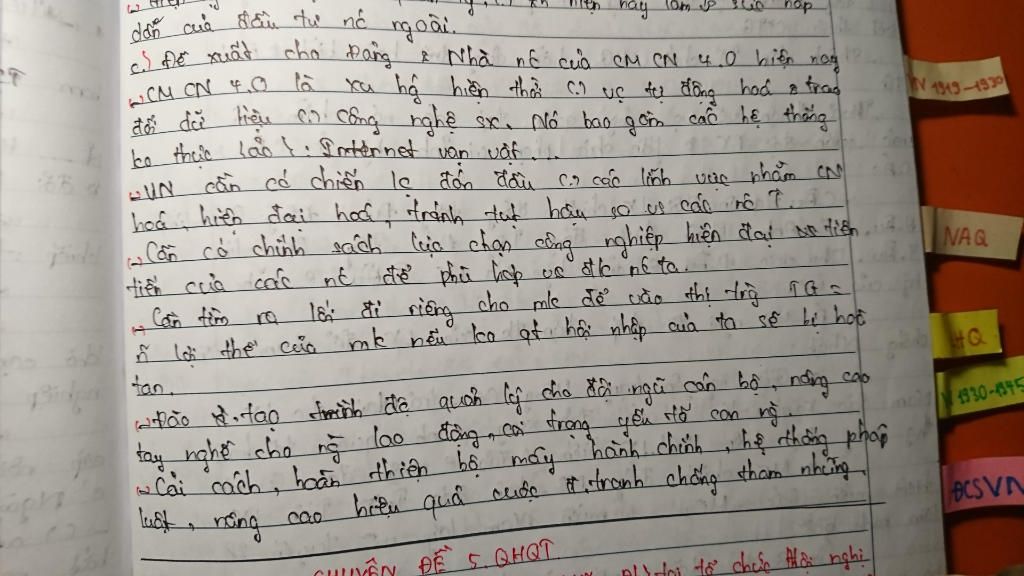 dẫn của đầu tư nc ngoài.
c.) Đề xuất cho Đảng & Nhà nc của CM CN 4.0 hiện nay
CM CN 4.0 là xu hg hiện thời (.) vc tự động hoá & trao
đổi dữ liệu (.) công nghệ sx. Nó bao gồm các hệ thống
ko thực (ảo). Internet vạn vật...
VN cần có chiến lc đón đầu (.) các lĩnh vực nhằm CN
hoá, hiện đại hoá, tránh tụt hậu so vs các nc ↑.
Cần có chính sách lựa chọn công nghiệp hiện đại tiên
tiến của các nc để phù hợp vs đk nc ta.
Cần tìm ra lối đi riêng cho mk để vào thị trg TG =
n~ lợi thế của mk nếu ko qt hội nhập của ta sẽ bị hoà
tan.
Đào tạo trình độ quản lý cho đội ngũ cán bộ, nâng cao
tay nghề cho ng lao động, coi trọng yếu tố con ng.
Cải cách, hoàn thiện bộ máy hành chính, hệ thống pháp
luật, nâng cao hiệu quả cuộc đ.tranh chống tham nhũng.
CHUYÊN ĐỀ 5. QHQT
tổ chức Hội nghị
1919-1930
NAQ
HQ
1930-1945
ĐCSVN